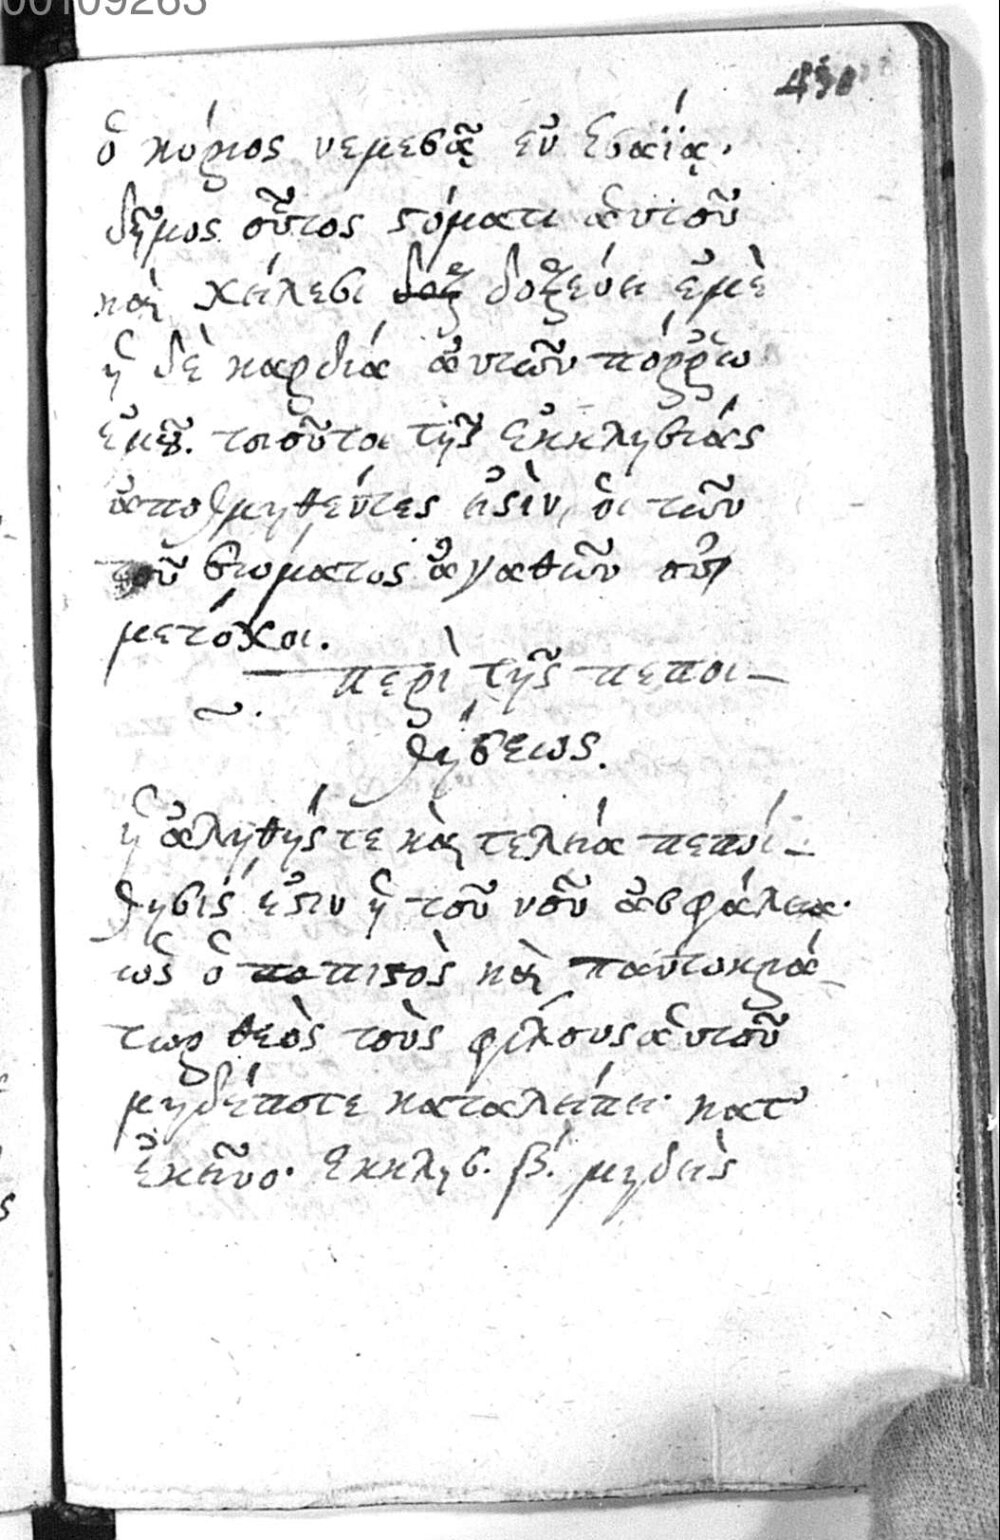 00109263
ὁ κύριος νεμεσᾷ ἐν Ἐσαΐᾳ·
δῆμος οὗτος στόματι ἁυτοῦ
καὶ χείλεσι δοξ δοξεύει ἐμὲ
ἡ δὲ καρδιά ἀυτῶν πόῤῥω
ἐμοῦ. τοιοῦτοι τῆς ἐκκλησιάς
ἀποθμηθέντες εἰσὶν, ὁι τῶν
τοῦ σώματος ἀγαθῶν οὐ
μετόχοι.
περὶ τῆς πεποι–
θήσεως.
ἡ ἀληθής τε καὶ τελεία πεποί–
θησίς ἐστιν ἡ τοῦ νοῦ ἀσφάλεια·
ὡς ὁ πα πιστὸς καὶ παντοκρά–
τωρ θεὸς τοὺς φίλους ἁυτοῦ
μηδέποτε καταλείπει· κατ'
ἐκεῖνο· Ἐκκλησ. β. μηδεὶς